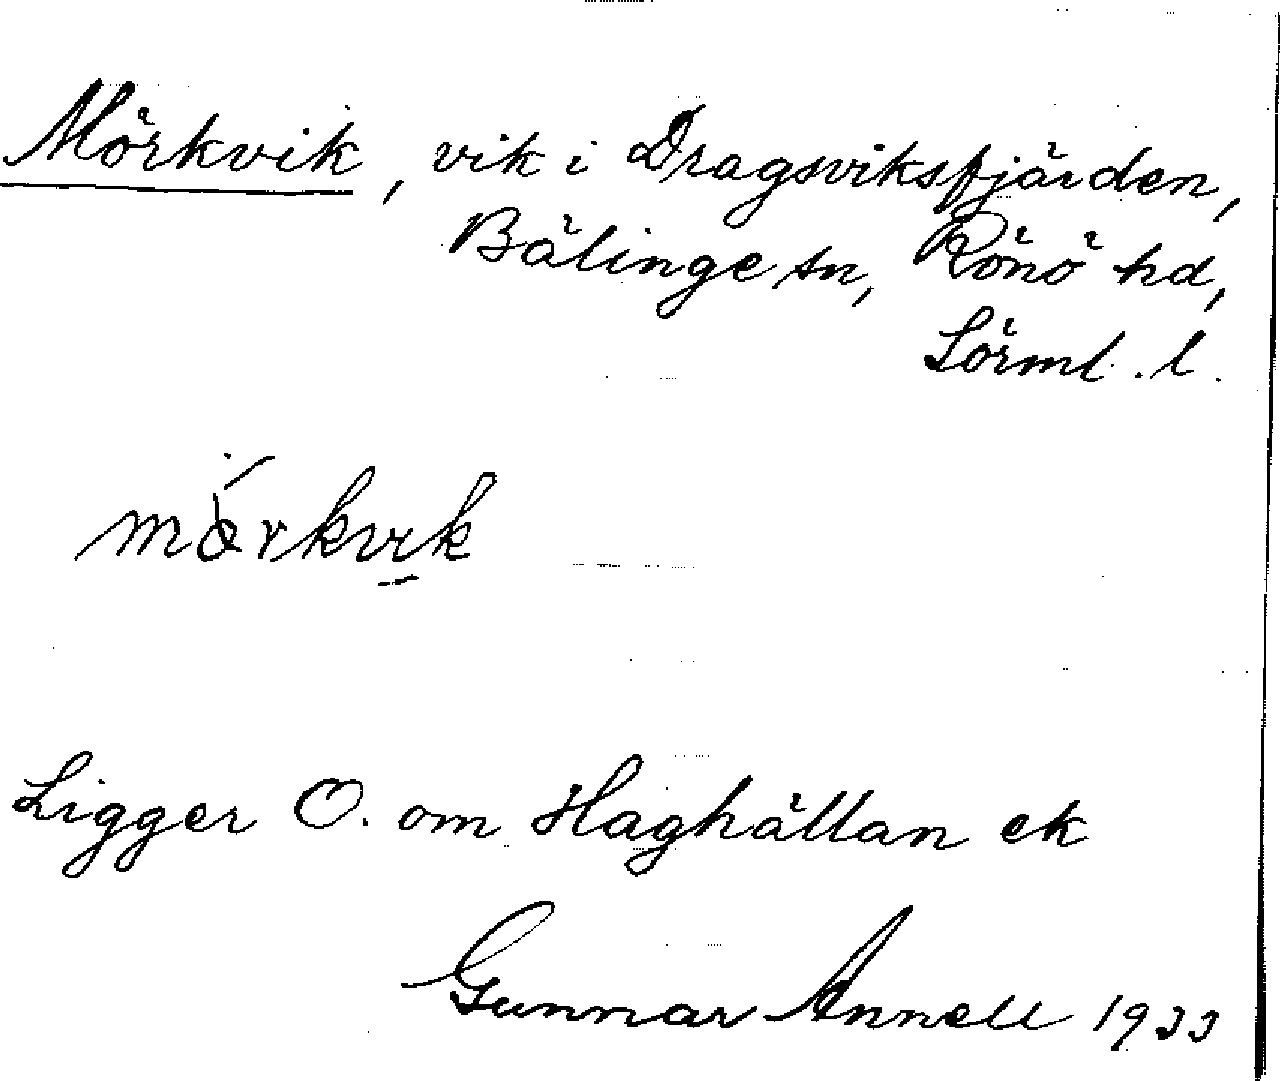 Mörkvik, vik i Dragsviksfjärden,
Bälinge sn, Rönö hd,
Sörml. l.
mörkvik
Ligger O. om Haghällan ek
Gunnar Annell 1933